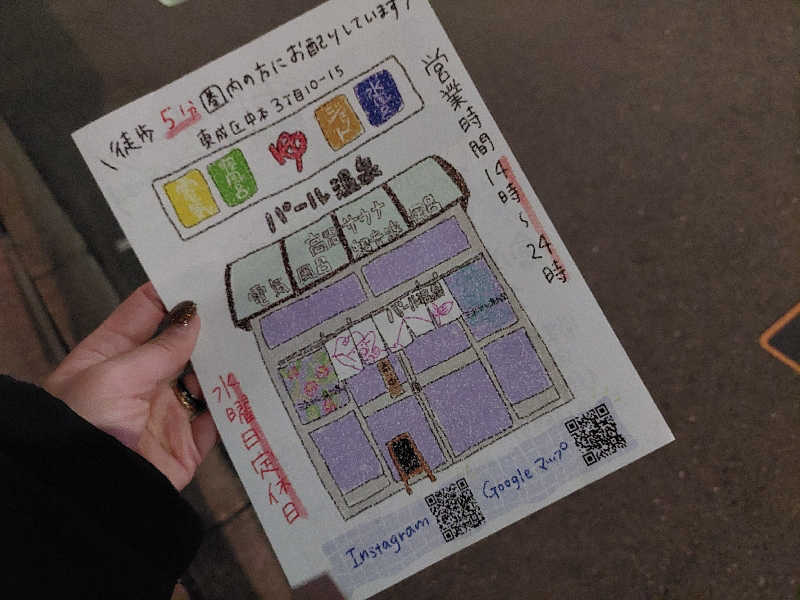 徒歩5分圏内の方にお配りしています!
東成区中本3丁目10-15
電気
ゆ
ジェット
水風呂
パール温泉
営業時間14時~24時
電気風呂
高温サウナ
超音波風呂
パール温泉
曜日定休日
Instagram
Googleマップ